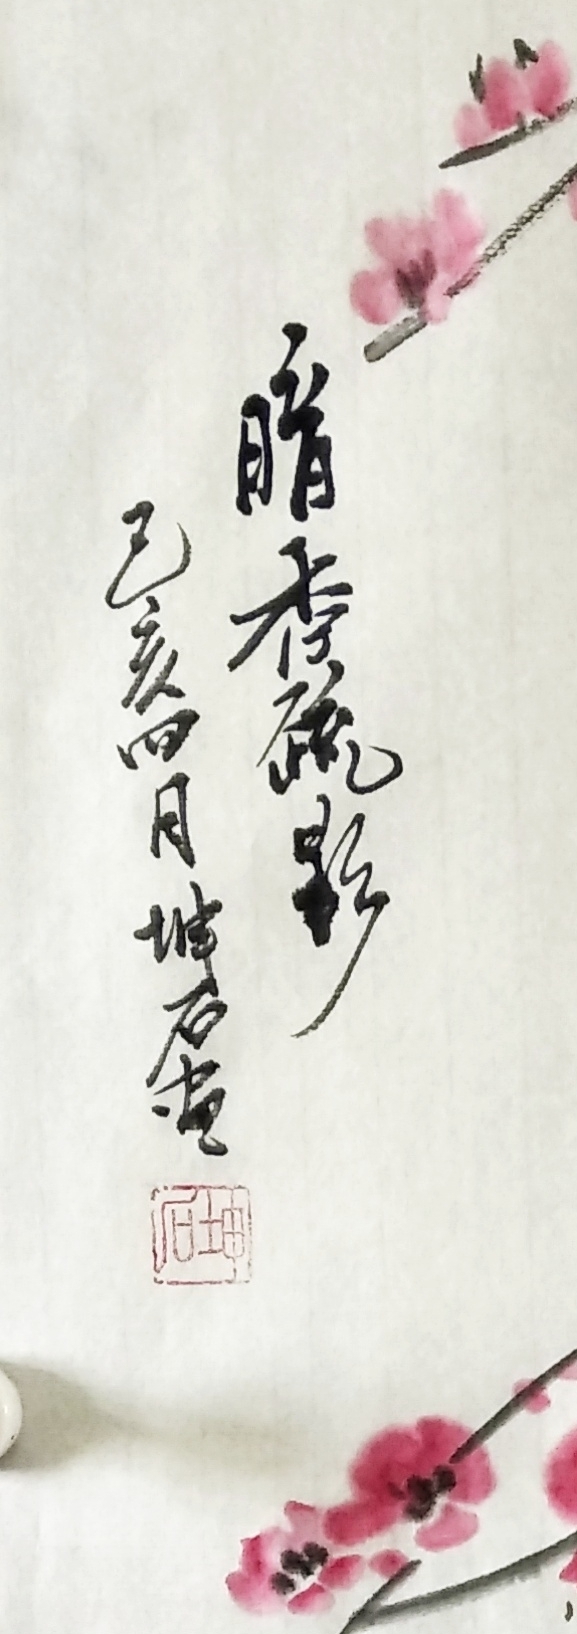 暗香疏影
己亥四月坤石画
坤石